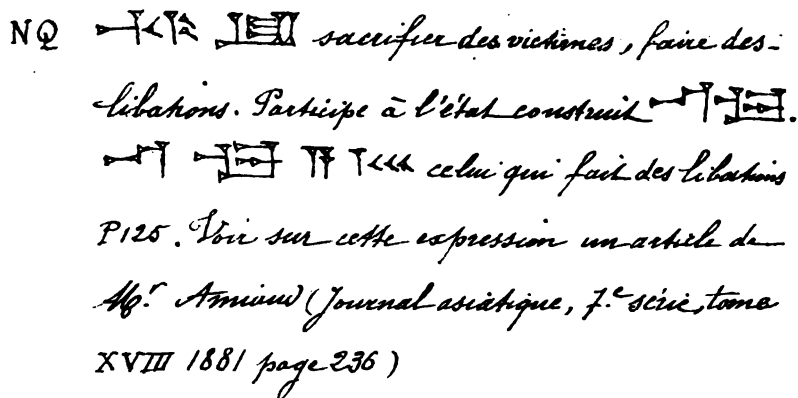 NQ sacrifier des victimes, faire des
libations. Participe à l'état construit .
celui qui fait des libations
P125. Voir sur cette expression un article de
Mr. Amiaud (Journal asiatique, 7.e série, tome
XVIII 1881 page 236)